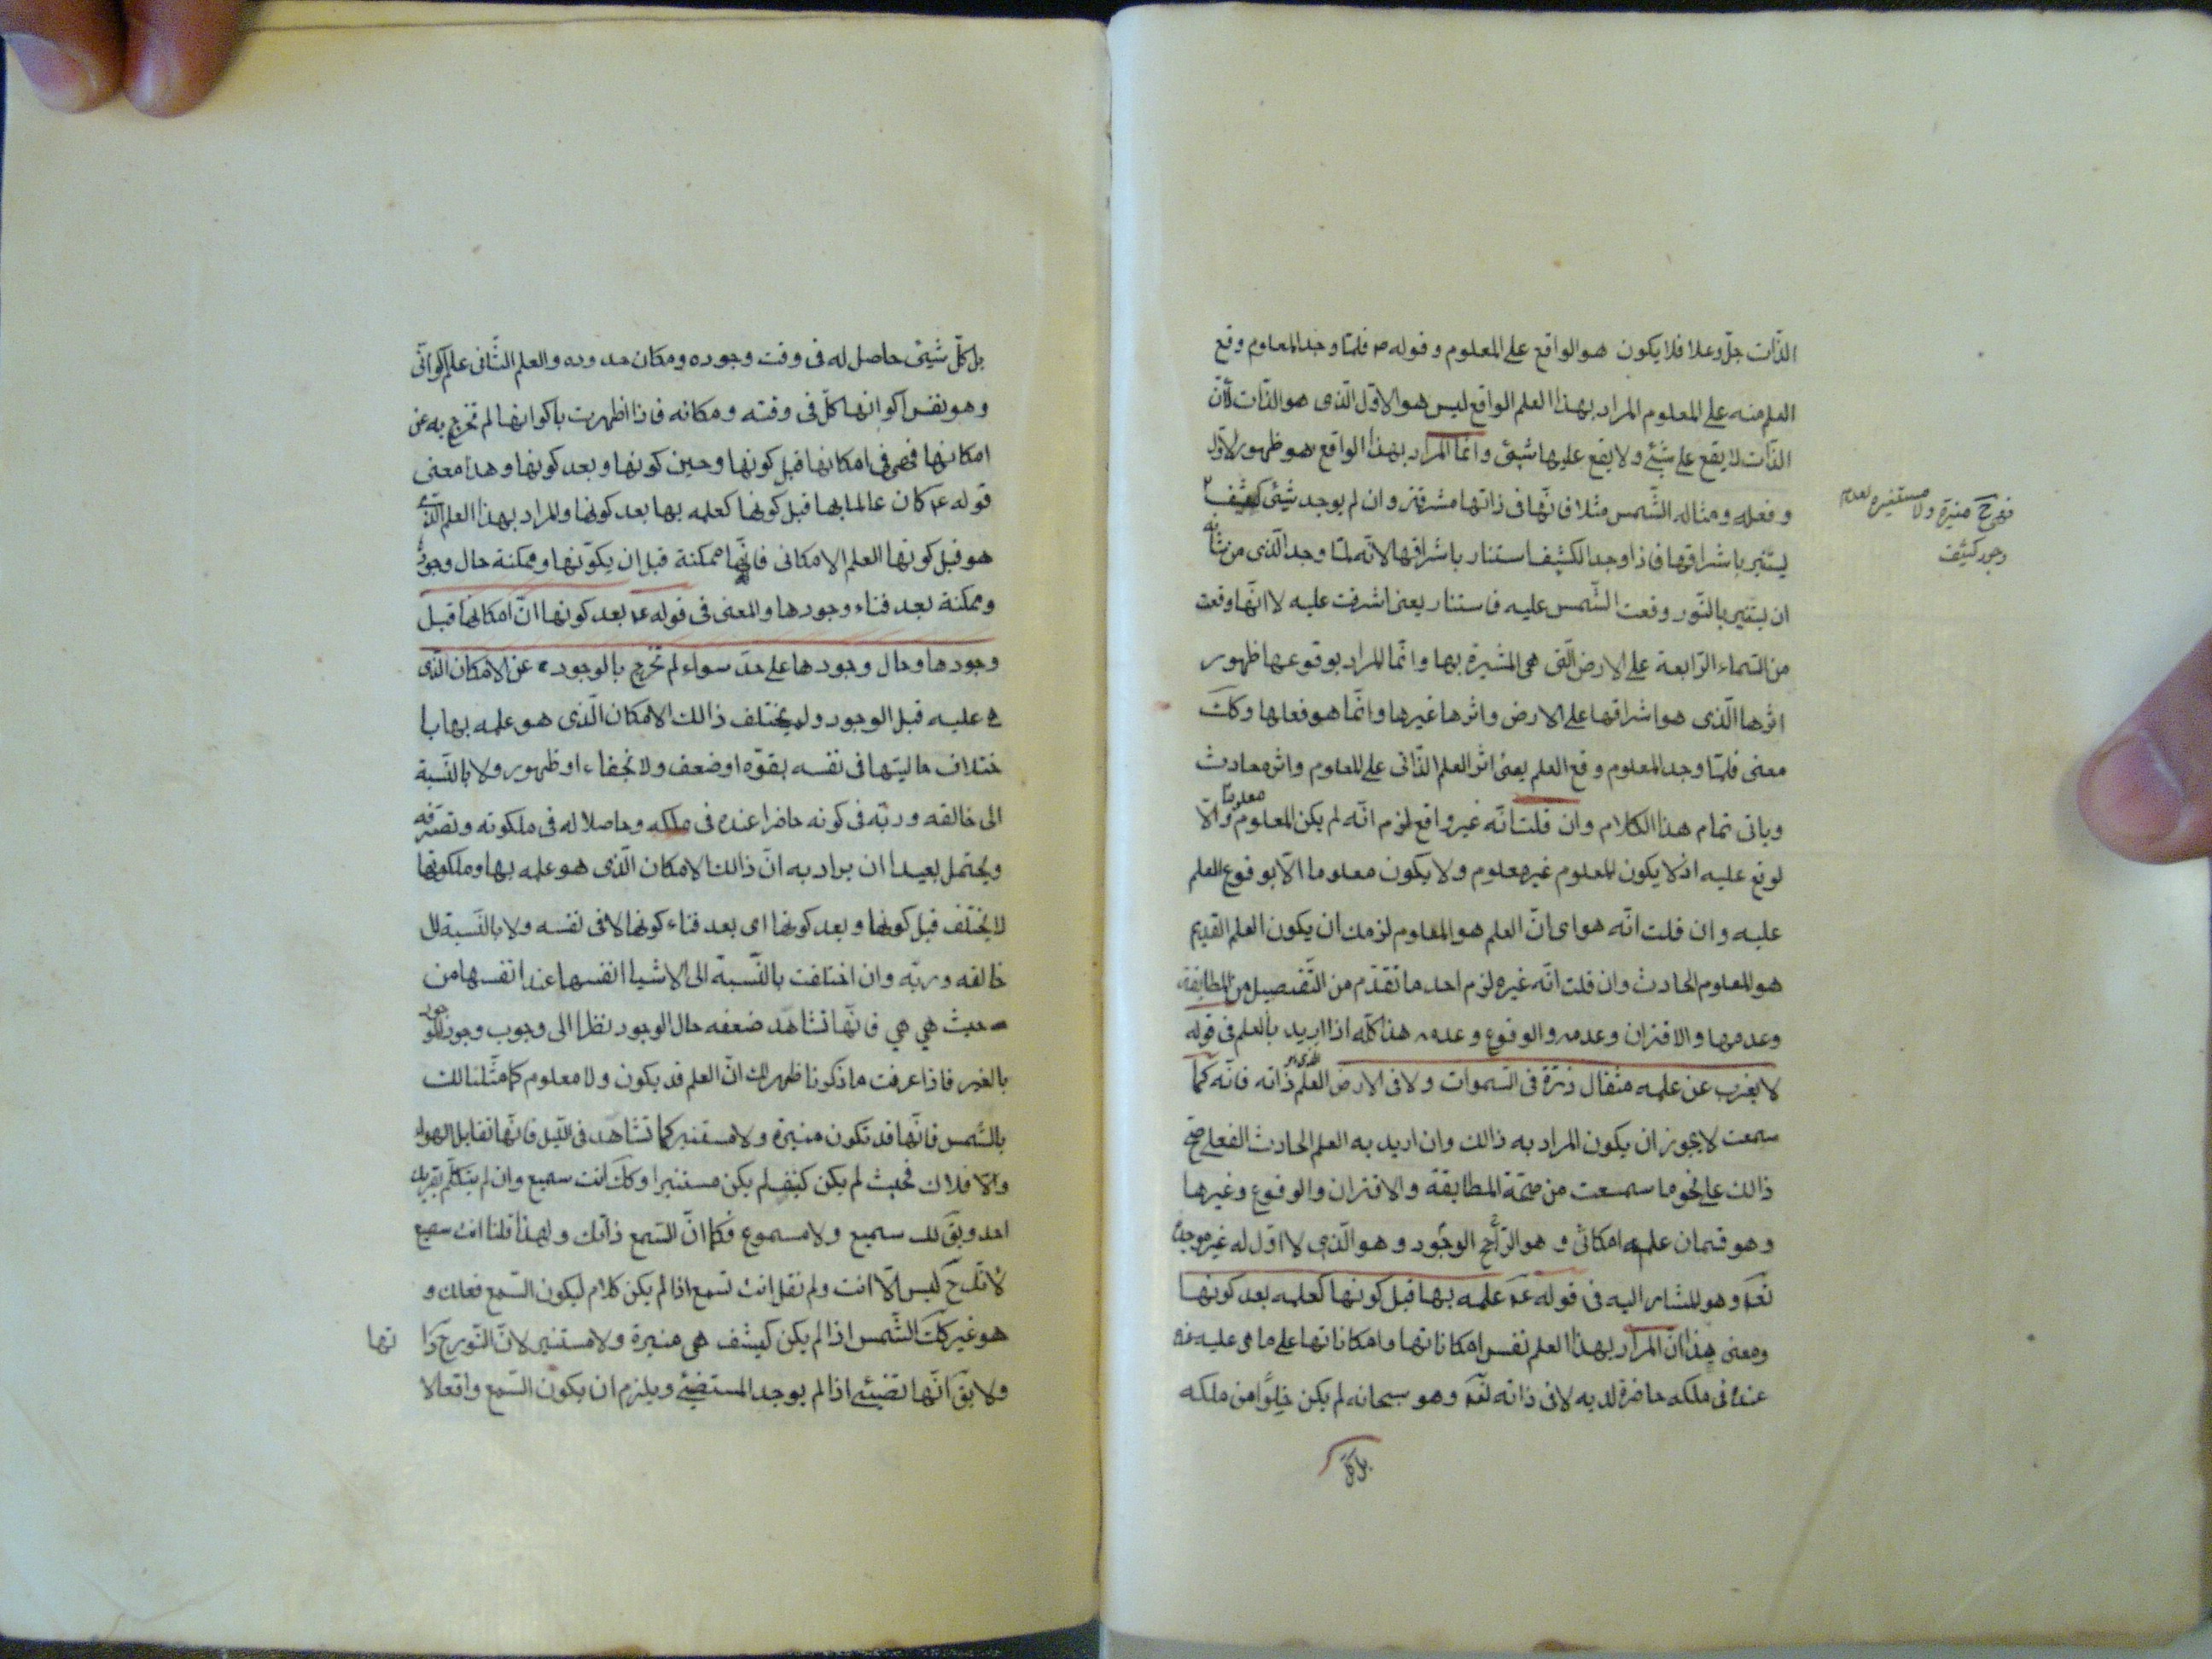 الذّات جلّ وعلا فلا يكون هو الواقع على المعلوم وقوله ص فلمّا وجد المعلوم وقع
العلم منه على المعلوم المراد بهذا العلم الواقع ليس هو الاوّل الّذى هو الذّات لأنّ
الذّات لا يقع على شئ ولا يقع عليها شئ وانّما المراد بهذا الواقع هو ظهور الاوّل
وفعله ومثاله الشّمس مثلا فانّها فى ذاتها مشرقة وان لم يوجد شئ كثيف
يستنير باشراقها فاذا وجد الكثيف استنار باشراقها لانّه لمّا وجد الّذى من شأنه
ان يستنير بالنّور وقعت الشّمس عليه فاستنار يعنى اشرقت عليه لا انّها وقعت
من السّماء الرّابعة على الارض الّتى هى المنيرة بها وانّما المراد بوقوعها ظهور
اثرها الّذى هو اشراقها على الارض واثرها غيرها وانّما هو فعلها وكك
معنى فلمّا وجد المعلوم وقع العلم يعنى اثر العلم الذّاتى على المعلوم واثره حادث
وياتى تمام هذا الكلام وان قلت انّه غير واقع لزم انّه لم يكن المعلوم معلوما والّا
لوقع عليه اذ لا يكون المعلوم غير معلوم ولا يكون معلوما الّا بوقوع العلم
عليه وان قلت انّه هو اى انّ العلم هو المعلوم لزمك ان يكون العلم القديم
هو المعلوم الحادث وان قلت انّه غيره لزم احد ما تقدّم من التّفصيل من المطابقة
وعدمها والاقتران وعدمه والوقوع وعدمه هذا كلّه اذا اريد بالعلم فى قوله
لا يغرب عن علمه مثقال ذرّة فى السّموات ولا فى الارض العلم الّذى هو ذاته فانّه كما
سمعت لا يجوز ان يكون المراد به ذالك وان اريد به العلم الحادث الفعلى صحّ
ذالك على نحو ما سمعت من صحّة المطابقة والاقتران والوقوع وغيرها
وهو قسمان علمه امكانىّ وهو الرّاجح الوجود وهو الّذى لا اوّل له غير موجده
تعم وهو المشار اليه فى قوله عم علمه بها قبل كونها كعلمه بعد كونها
ومعنى هذا انّ المراد بهذا العلم نفس امكاناتها وامكاناتها على ما هى عليه
عنده فى ملكه حاضرة لديه لا فى ذاته تعم وهو سبحانه لم يكن خلوّا من ملكه
بل كل
فهى ح منيرة ولا مستنيره لعدم
وجود كثيف
بل كلّ شئ حاصل له فى وقت وجوده ومكان حدوده والعلم الثّانى علم اكوانىّ
وهو نفس اكوانها كلّ فى وقته ومكانه فاذا ظهرت باكوانها لم تخرج به عن
امكانها فهى فى امكانها قبل كونها وحين كونها وبعد كونها وهذا معنى
قوله عم كان عالما بها قبل كونها كعلمه بها بعد كونها والمراد بهذا العلم الّذى
هو قبل كونها العلم الامكانى فانّها ممكنة قبل ان يكوّنها وممكنة حال وجودها
وممكنة بعد فناء وجودها والمعنى فى قوله عم بعد كونها انّ امكانها قبل
وجودها وحال وجودها على حدّ سواء لم تخرج بالوجود عن الامكان الّذى
هى عليه قبل الوجود ولم يختلف ذالك الامكان الّذى هو علمه بها با
ختلاف حاليتها فى نفسه بقوّه او ضعف ولا بخفاء او ظهور ولا بالنّسبة
الى خالقه وربّه فى كونه حاضرا عنده فى ملكه وحاصلا له فى ملكوته وتصرّفه
ويحتمل بعيدا ان يراد به انّ ذالك الامكان الّذى هو علمه بها وملكوتها
لا يختلف قبل كونها وبعد كونها اى بعد فناء كونها لا فى نفسه ولا بالنّسبة الى
خالقه وربّه وان اختلفت بالنّسبة الى الاشيا انفسها عند انفسها من
حيث هي هي فانّها تشاهد ضعفه حال الوجود نظرا الى وجوب وجود
بالغير فاذا عرفت ما ذكرنا ظهر لك انّ العلم قد يكون ولا معلوم كما مثّلنا لك
بالشّمس فانّها قد تكون منيرة ولا مستنير كما تشاهد فى اللّيل فانّها تقابل الهواء
والافلاك فحيث لم يكن كثيف لم يكن مستنيرا وكك انت سميع وان لم يتكلّم بقربك
احد ويقك سميع ولا مسموع فكما انّ السّمع ذاتك ولهذا قلنا انت سميع
لانّك ح ليس الّا انت ولم نقل انت تسمع اذا لم يكن كلام ليكون السّمع فعلك و
هو غيرك كك الشّمس اذا لم يكن كثيف هى منيرة ولا مستنير لانّ النّور ح ذا تها
ولا يق انّها تضئ اذا لم يوجد المستضئ ويلزم ان يكون السّمع واقعا لا